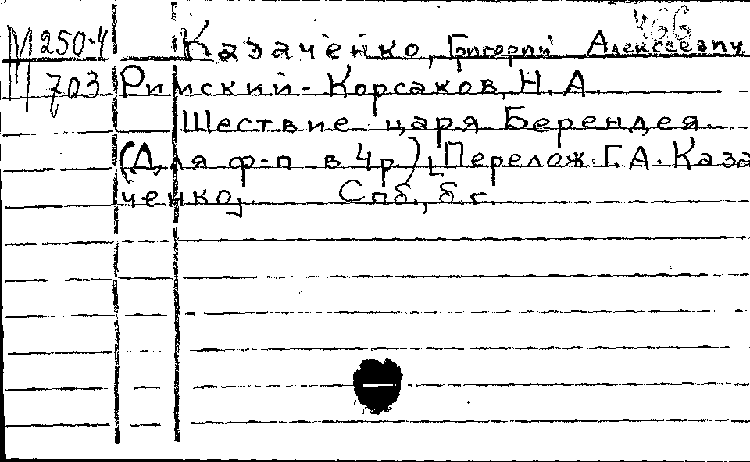 466
М 250-4 Казаченко, Григорий Алексеевич
М 703 Римский-Корсаков, Н. А.
Шествие царя Берендея.
(Для ф-п в 4 р.) [Перелож. Г. А. Каза
ченко]. Спб., б. г.